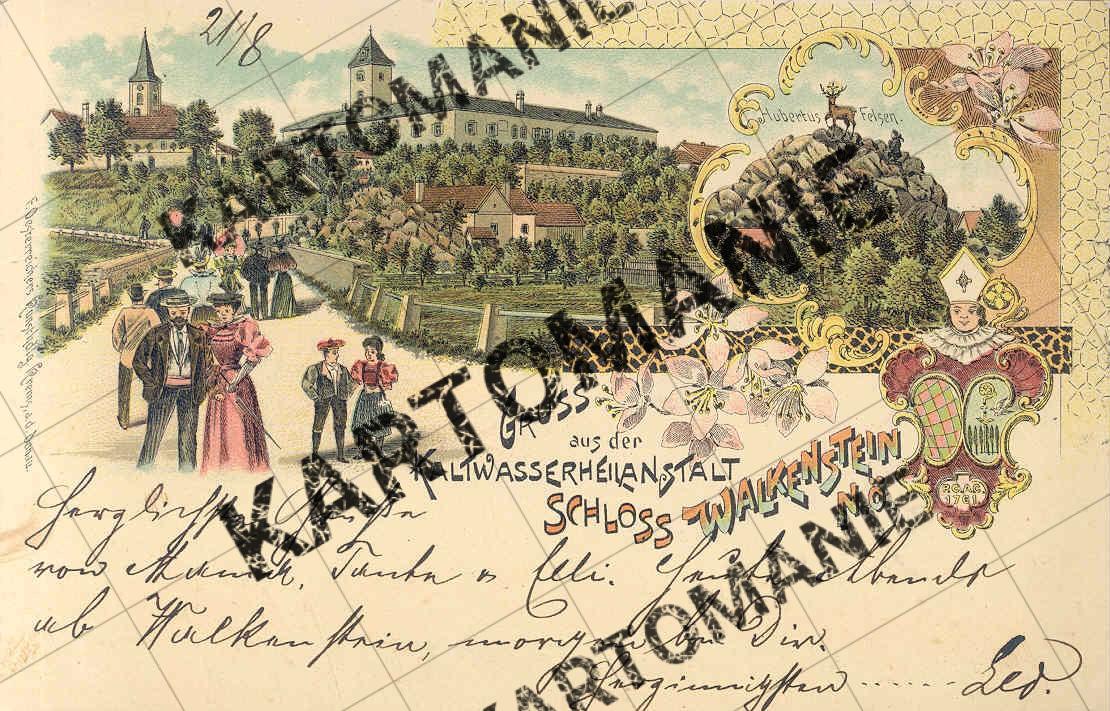 21/8
KARTOMANIE
KARTOMANIE
Hubertus Felsen.
KARTOMANIE
GRUSS
aus der
KALTWASSERHEILANSTALT
SCHLOSS WALKENSTEIN
N.Ö.
P.C.A.G.
1761
KARTOMANIE
KARTOMANIE
Herzlichste Grüße
von Mama, Tante u Elli. Heute Abends
ab Walkenstein, morgen bei Dir.
Herzinnigsten ...... Leo.